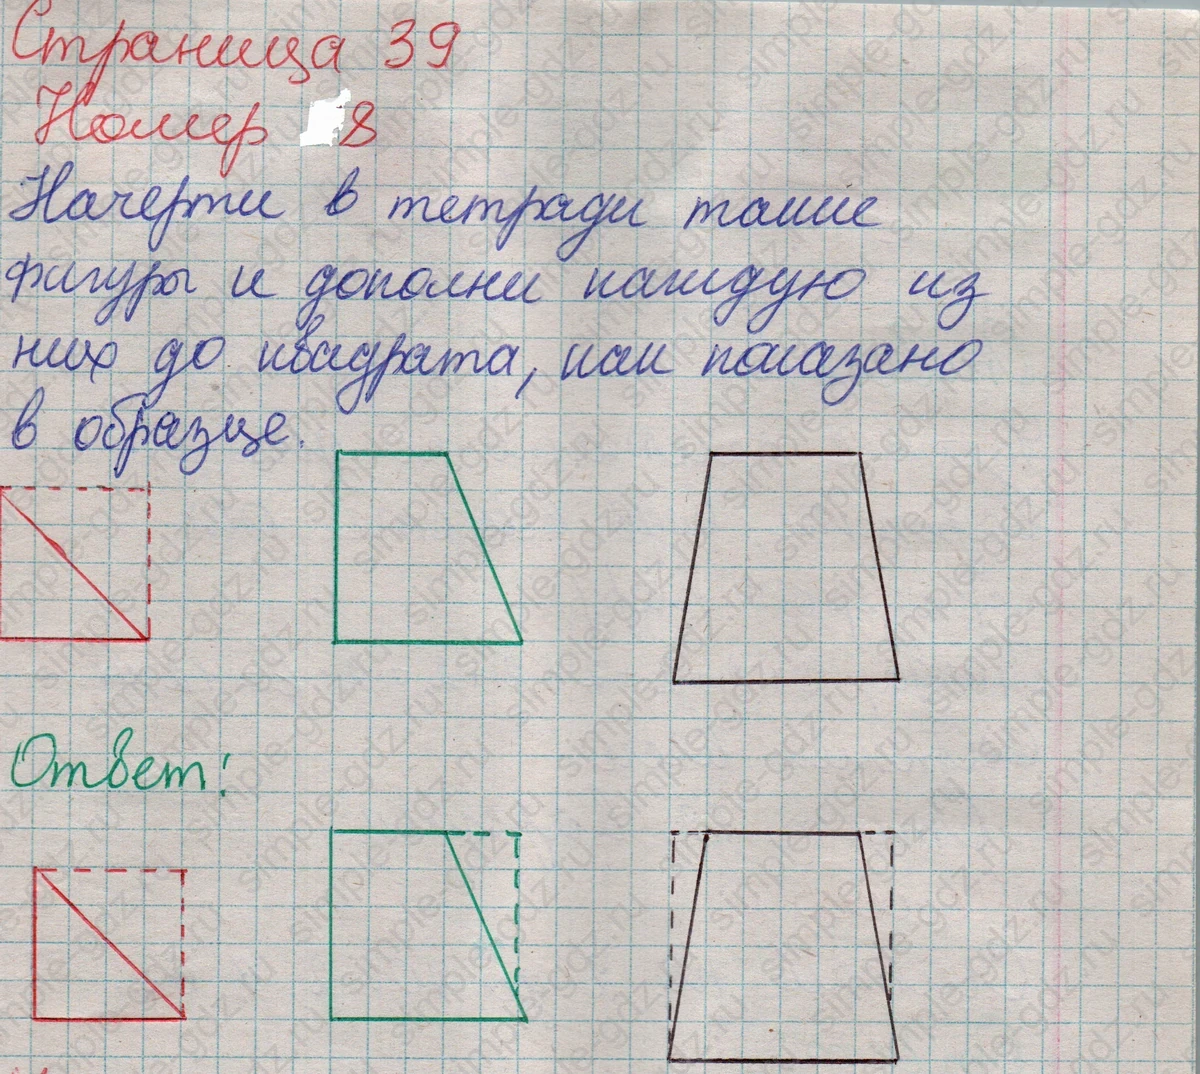 Страница 39
Номер 8
Начерти в тетради такие
фигуры и дополни каждую из
них до квадрата, как показано
в образце.
Ответ:
simple-gdz.ru